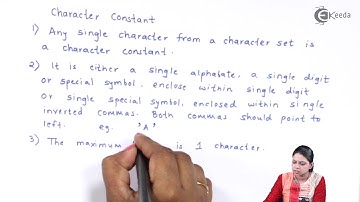 Character Constant
Ekeeda
1) Any single character from a character set is
a character constant.
2) It is either a single alphabate, a single digit
or special symbol, enclose within single digit
or single special symbol, enclosed within single
inverted commas. Both commas should point to
left. eg. 'A'
3) The maximum is 1 character.